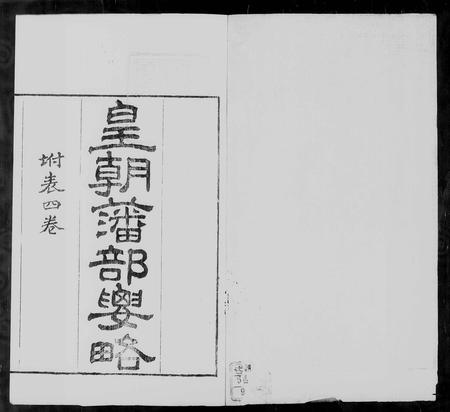 皇朝藩部要略
坿表四卷